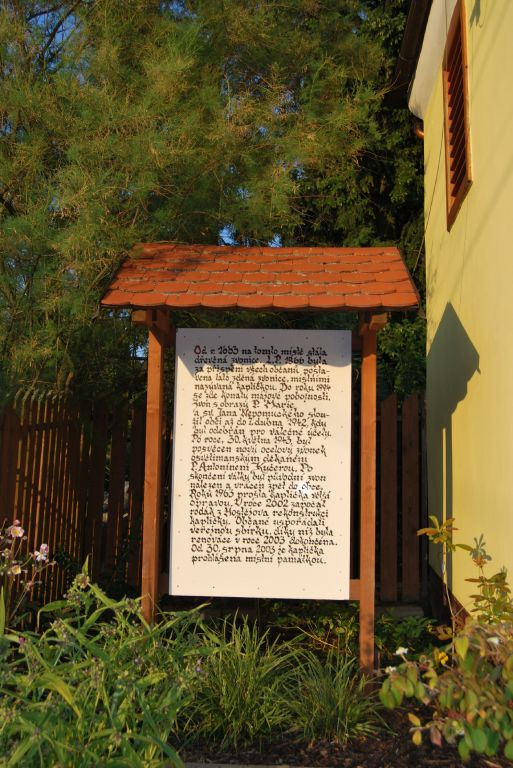 Od r. 1663 na tomto místě stála
dřevěná zvonice. L.P. 1866 byla
za přispění všech občanů posta-
vena tato zděná zvonice, místními
nazývaná kapličkou. Do roku 1994
se zde konaly májové pobožnosti.
Zvon s obrazy P. Marie
a sv. Jana Nepomuckého slou-
žil obci až do 2. dubna 1942, kdy
byl odebrán pro válečné účely.
Po roce, 30. května 1943, byl
posvěcen nový ocelový zvonek
osvětimanským děkanem
P. Antonínem Kučerou. Po
skončení války byl původní zvon
nalezen a vrácen zpět do obce.
Roku 1963 prošla kaplička větší
opravou. V roce 2002 započal
rodák z Hostějova rekonstrukci
kapličky. Občané uspořádali
veřejnou sbírku, díky níž byla
renovace v roce 2003 dokončena.
Od 30. srpna 2003 je kaplička
prohlášena místní památkou.